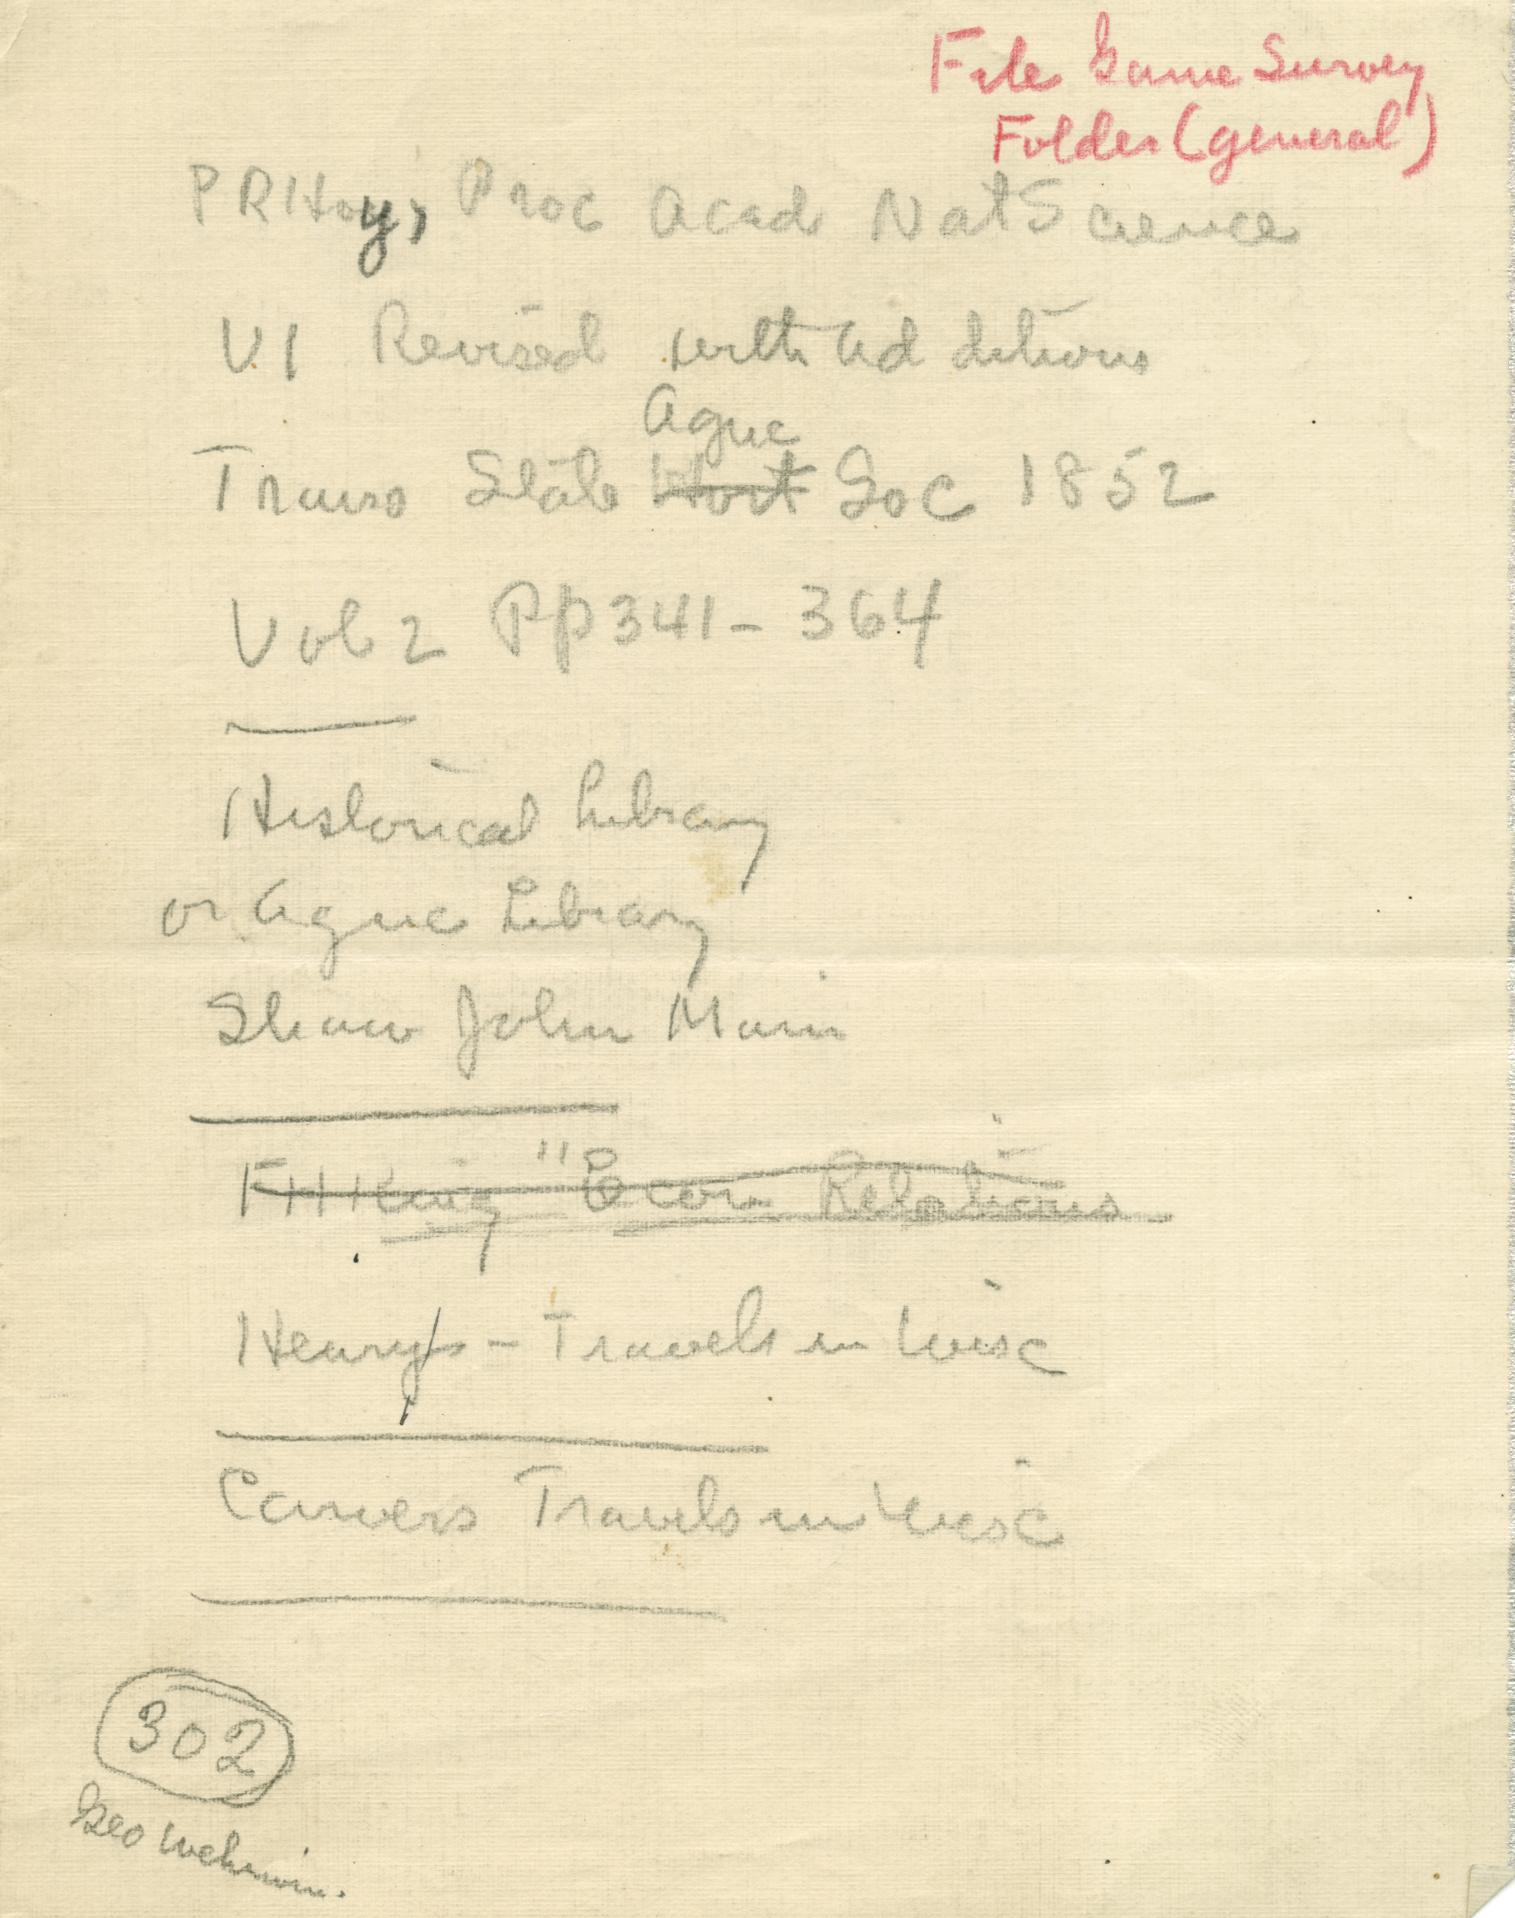 File Game Survey
Folder (general)
PR Hoy, Proc Acad Nat Science
V1 Revised with additions
Agric
Trans State Hort Soc 1852
Vol 2 Pp 341-364
Historical Library
or Agric Library
Shaw John Muir
FH King "Econ Relations
Henrys - Travels in Wisc
Carvers Travels in Wisc
302
Geo Wehrwein.